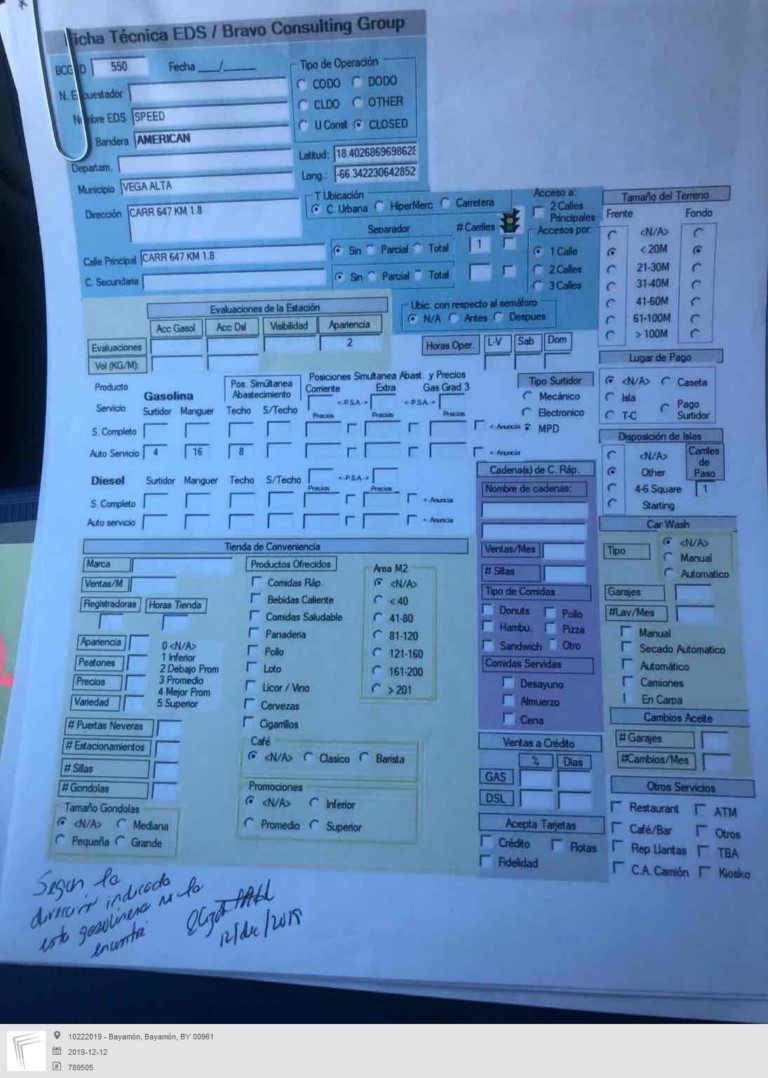 Ficha Técnica EDS / Bravo Consulting Group
BCG ID 550 Fecha ___/___
Tipo de Operación
CODO DODO
CLDO OTHER
U Const CLOSED
N. Encuestador
Nombre EDS SPEED
Bandera AMERICAN
Departam.
Latitud: 18.402686969862
Long.: -66.342230642852
Municipio VEGA ALTA
Dirección CARR 647 KM 1.8
T Ubicación
C. Urbana HiperMerc Carretera
Separador # Carriles
Calle Principal CARR 647 KM 1.8 Sin Parcial Total 1
C. Secundaria Sin Parcial Total
Acceso a:
2 Calles
Principales
Accesos por:
1 Calle
2 Calles
3 Calles
Tamaño del Terreno
Frente Fondo
<N/A>
< 20M
21-30M
31-40M
41-60M
61-100M
> 100M
Evaluaciones de la Estación
Acc Gasol Acc Dsl Visibilidad Apariencia
Evaluaciones 2
Vol (KG/M):
Ubic. con respecto al semáforo
N/A Antes Despues
Horas Oper. L-V Sab Dom
Lugar de Pago
<N/A> Caseta
Isla Pago
T-C Surtidor
Producto
Servicio
Gasolina
Surtidor Manguer
Pos. Simúltanea
Abastecimiento
Techo S/Techo
Posiciones Simultanea Abast. y Precios
Corriente Extra Gas Grad 3
<-P.S.A.-> <-P.S.A.->
Precios Precios Precios
S. Completo < Anuncia
Auto Servicio 4 16 8 < Anuncia
Tipo Surtidor
Mecánico
Electronico
MPD
Disposición de Islas
<N/A>
Other
4-6 Square
Starting
Carriles
de
Paso
1
Diesel Surtidor Manguer Techo S/Techo <-P.S.A.->
Precios Precios
S. Completo < Anuncia
Auto servicio < Anuncia
Cadena(s) de C. Ráp.
Nombre de cadenas:
Ventas/Mes
# Sillas
Tipo de Comidas
Donuts Pollo
Hambu. Pizza
Sandwich Otro
Comidas Servidas
Desayuno
Almuerzo
Cena
Car Wash
Tipo
<N/A>
Manual
Automatico
Garajes
#Lav/Mes
Manual
Secado Automatico
Automático
Camiones
En Carpa
Tienda de Conveniencia
Marca
Ventas/M
Registradoras Horas Tienda
Apariencia
Peatones
Precios
Variedad
0 <N/A>
1 Inferior
2 Debajo Prom
3 Promedio
4 Mejor Prom
5 Superior
Productos Ofrecidos
Comidas Ráp.
Bebidas Caliente
Comidas Saludable
Panaderia
Pollo
Loto
Licor / Vino
Cervezas
Cigarrillos
Area M2
<N/A>
< 40
41-80
81-120
121-160
161-200
> 201
# Puertas Neveras
# Estacionamientos
# Sillas
# Gondolas
Tamaño Gondolas
<N/A> Mediana
Pequeña Grande
Café
<N/A> Clasico Barista
Promociones
<N/A> Inferior
Promedio Superior
Ventas a Crédito
% Dias
GAS
DSL
Acepta Tarjetas
Crédito Flotas
Fidelidad
Cambios Aceite
# Garajes
#Cambios/Mes
Otros Servicios
Restaurant ATM
Café/Bar Otros
Rep Llantas TBA
C.A. Camión Kiosko
Segun la
dirección indicada
esta gasolinera no la
encontré
12/dec/2019
10222019 - Bayamón, Bayamón, BY 00961
2019-12-12
789505